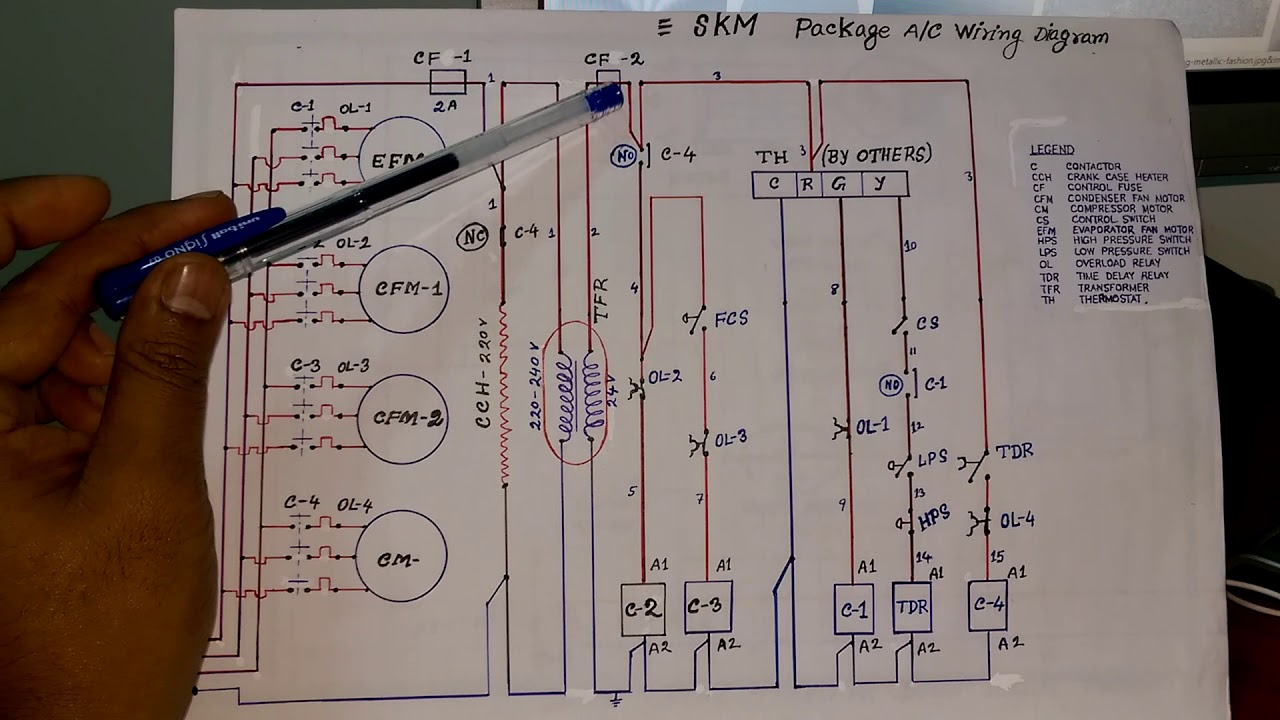 ≡ SKM Package A/C Wiring Diagram
g-metallic-fashion.jpg&im
CF -1
CF -2
1
3
2A
C-1 OL-1
EFM
NO C-4
TH 3 (BY OTHERS)
C R G Y
3
LEGEND
C CONTACTOR
CCH CRANK CASE HEATER
CF CONTROL FUSE
CFM CONDENSER FAN MOTOR
CM COMPRESSOR MOTOR
CS CONTROL SWITCH
EFM EVAPORATOR FAN MOTOR
HPS HIGH PRESSURE SWITCH
LPS LOW PRESSURE SWITCH
OL OVERLOAD RELAY
TDR TIME DELAY RELAY
TFR TRANSFORMER
TH THERMOSTAT.
uni-ball SIGNO 0.7
1
NC C-4 1 2
2 OL-2
CFM-1
TFR
4
8
10
FCS
CS
11
CCH-220V
220-240V
24V
C-3 OL-3
CFM-2
OL-2
6
NO C-1
OL-3
OL-1
12
LPS
TDR
5
7
9
13
HPS
OL-4
C-4 OL-4
CM-
14
15
A1 A1 A1 A1 A1
C-2 C-3 C-1 TDR C-4
A2 A2 A2 A2 A2